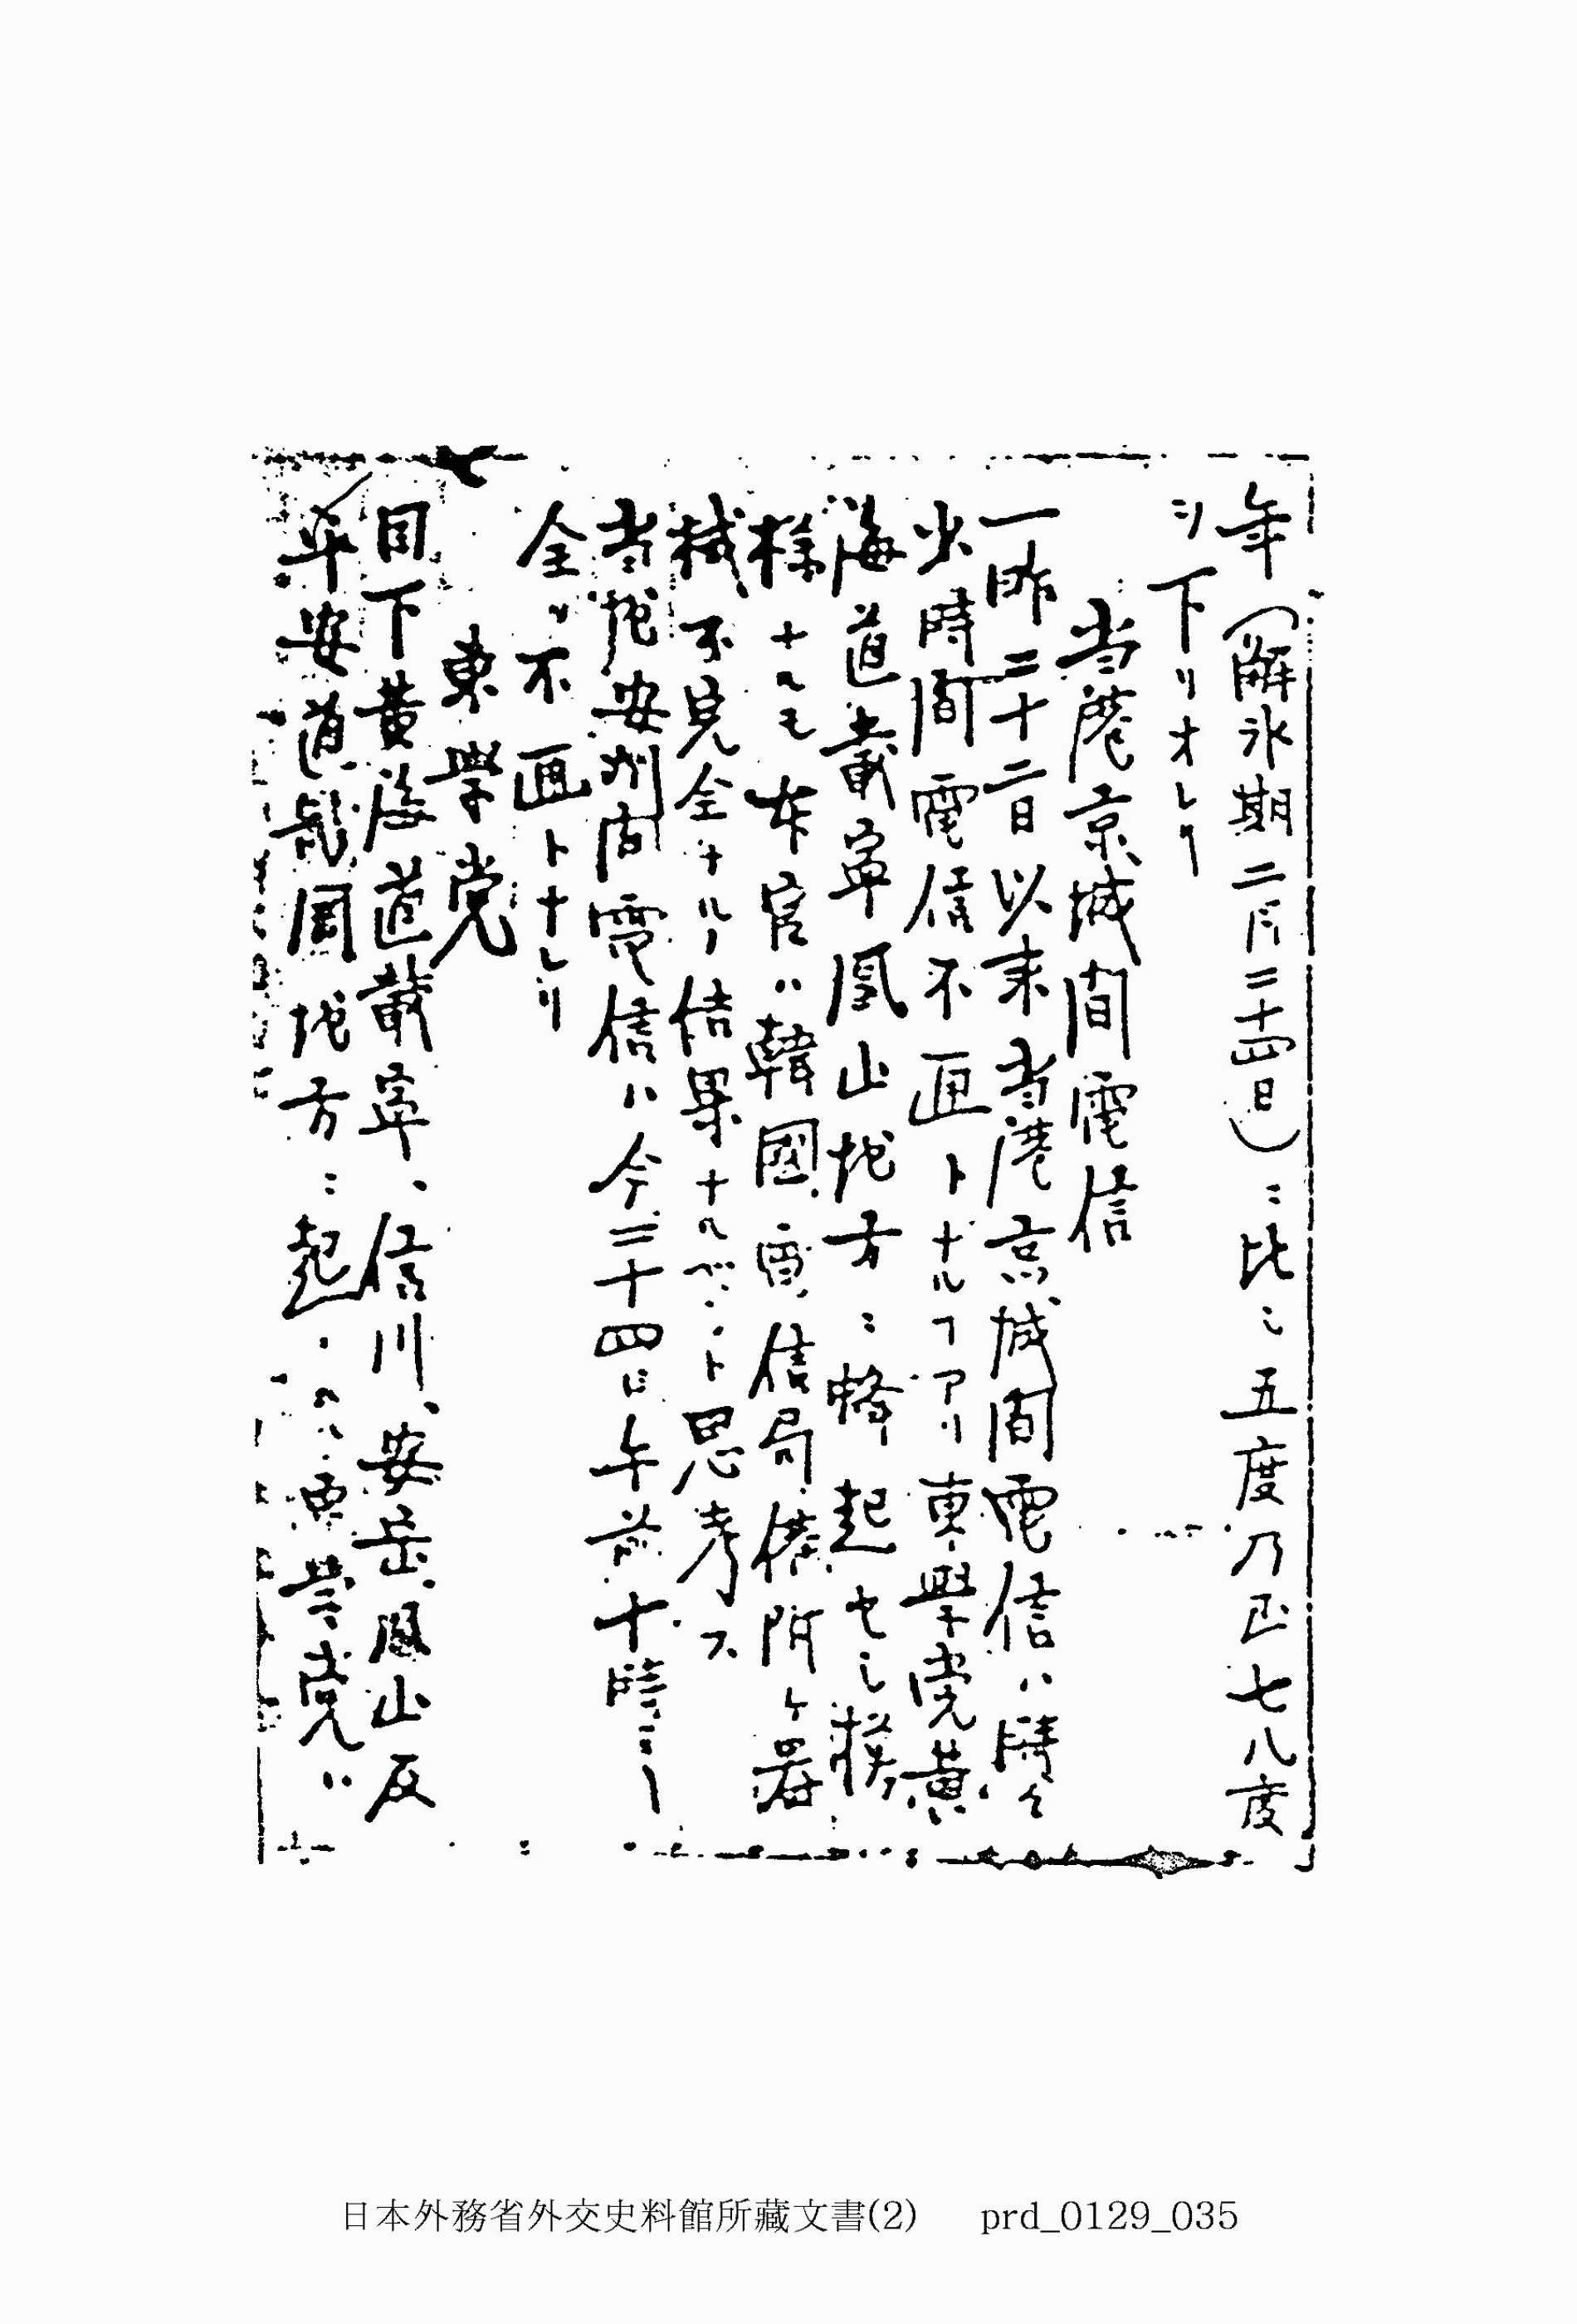 年（解氷期二月二十四日）ニ比シ五度乃至七八度
ツ下リオレリ
当港京城間電信
一昨二十二日以来当港京城間電信ハ時々
少時間電信不通トナルヿアリ東學党黄
海道載寧鳳山地方ニ蜂起セシ模
様ナルモ本官ハ韓國電信局備附ケ器
械不完全ナルノ結果ナルベシト思考ス
当地安州間電信ハ今二十四日午前十時ニ
全ク不通トナレリ
東學党
目下黄海道載寧、信川、安岳、鳳山及
平安道龍岡地方ニ起レル東学党ハ
日本外務省外交史料館所藏文書(2) prd_0129_035